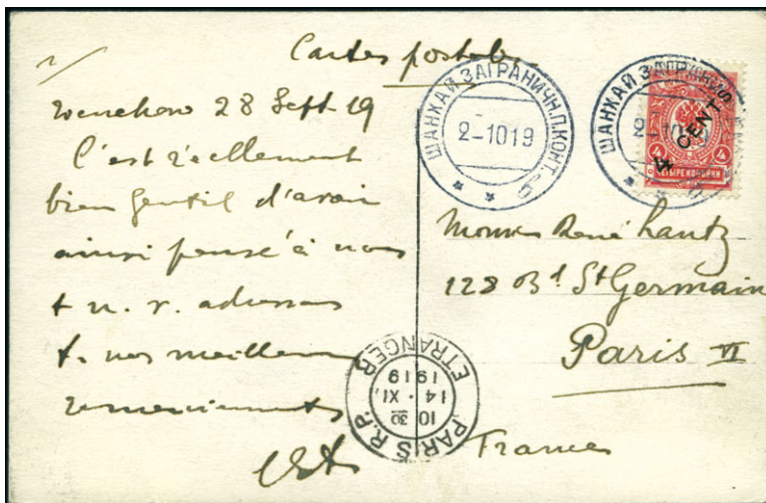 Cartes postales
1/
Wenchow 28 Sept. 19
C'est réellement
bien gentil d'avoir
ainsi pensé à nous
+ n. v. adressons
t. nos meilleurs
remerciements
ШАНХАЙ ЗАГРАНИЧН.П.КОНТ.
2-10 19
б
ШАНХАЙ ЗАГРАНИЧН
2-10 19
б
4 CENTS
4
4
ЧЕТЫРЕ КОПѢЙКИ
René Lautz
128 Bd St Germain
Paris VI
France
PARIS R.P.
10 30
14 · XI,
1919
ETRANGER